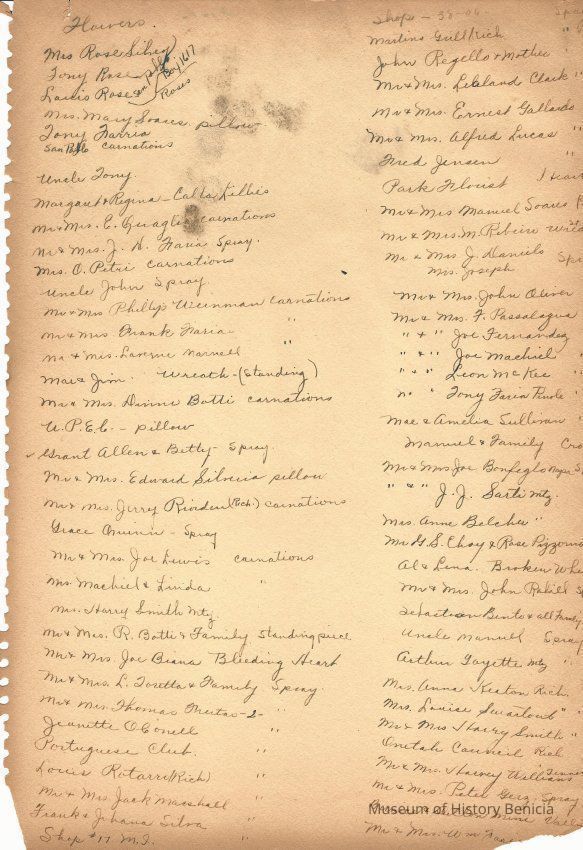 Flowers.
Mrs Rose Silva
Tony Rose
Louis Rose
Box 1617
Roses
Mrs. Mary Soares pillow
Tony Farria
San Pablo carnations
Uncle Tony
Margaret & Regina - Calla Lillies
Mr & Mrs. E. Quaglia carnations
Mr & Mrs. J. N. Faria Spray.
Mrs. C. Petri carnations
Uncle John Spray.
Mr & Mrs Phillip Weinman Carnations
Mr & Mrs Frank Faria "
Mr & Mrs. Laverne Marnell
Mae & Jim. Wreath - (Standing)
Mr & Mrs. Dinno Botti carnations
U.P.E.C. - pillow
Grant Allen & Betty - Spray.
Mr & Mrs. Edward Silveira pillow
Mr & Mrs. Jerry Riorden (Rich.) carnations
Grace - Spray
Mr & Mrs. Joe Lewis carnations
Mrs. Machiel & Linda "
Mrs. Harry Smith Mtz.
Mr & Mrs. R. Botti & Family Standing piece
Mr & Mrs. Joe Biana Bleeding Heart
Mr & Mrs. L. Tosetta & Family Spray.
Mr & Mrs. Thomas Freitas - 2 - "
Jeanette O'Conell "
Portuguese Club. "
Louis Rotarri (Rich) "
Mr & Mrs. Jack Marshall "
Frank & Johana Silva "
Shop #17 M.I. "
Shop - 38 - 06 - Sp
Martins Grill Rich "
John Regello & Mother "
Mr & Mrs. Leland Clark "
Mr & Mrs. Ernest Gallardo
Mr & Mrs. Alfred Lucas "
Fred Jensen "
Park Florist Hear
Mr & Mrs Manuel Soares
Mr & Mrs. M. Ribeiro
Mr & Mrs. J. Daniels Spr
Mrs. Joseph
Mr & Mrs. John Oliver
Mr & Mrs. F. Passalaqua
" & " Joe Fernandez
" & " Joe Machiel
" & " Leon McKee
" Tony Faria
Mae & Amelia Sullivan
Manuel & Family Cro
Mr & Mrs Joe Bonfiglo
" & " J. J. Sarti Mtz.
Mrs. Anne Belcher "
Mr G. S. Choy & Rose
Al & Lena. Broken Whe
Mr & Mrs. John Rahill Sp
Sebastian Bento & all Family
Uncle Manuel Spray
Arthur Fayette Mtz "
Mrs. Anna Keaton Rich.
Mrs. Louise "
Mr & Mrs Harry Smith "
Council Rich
Mr & Mrs. Harvey Williams
Mr & Mrs. Peter Spray
Mr & Mrs. Wm
Museum of History Benicia